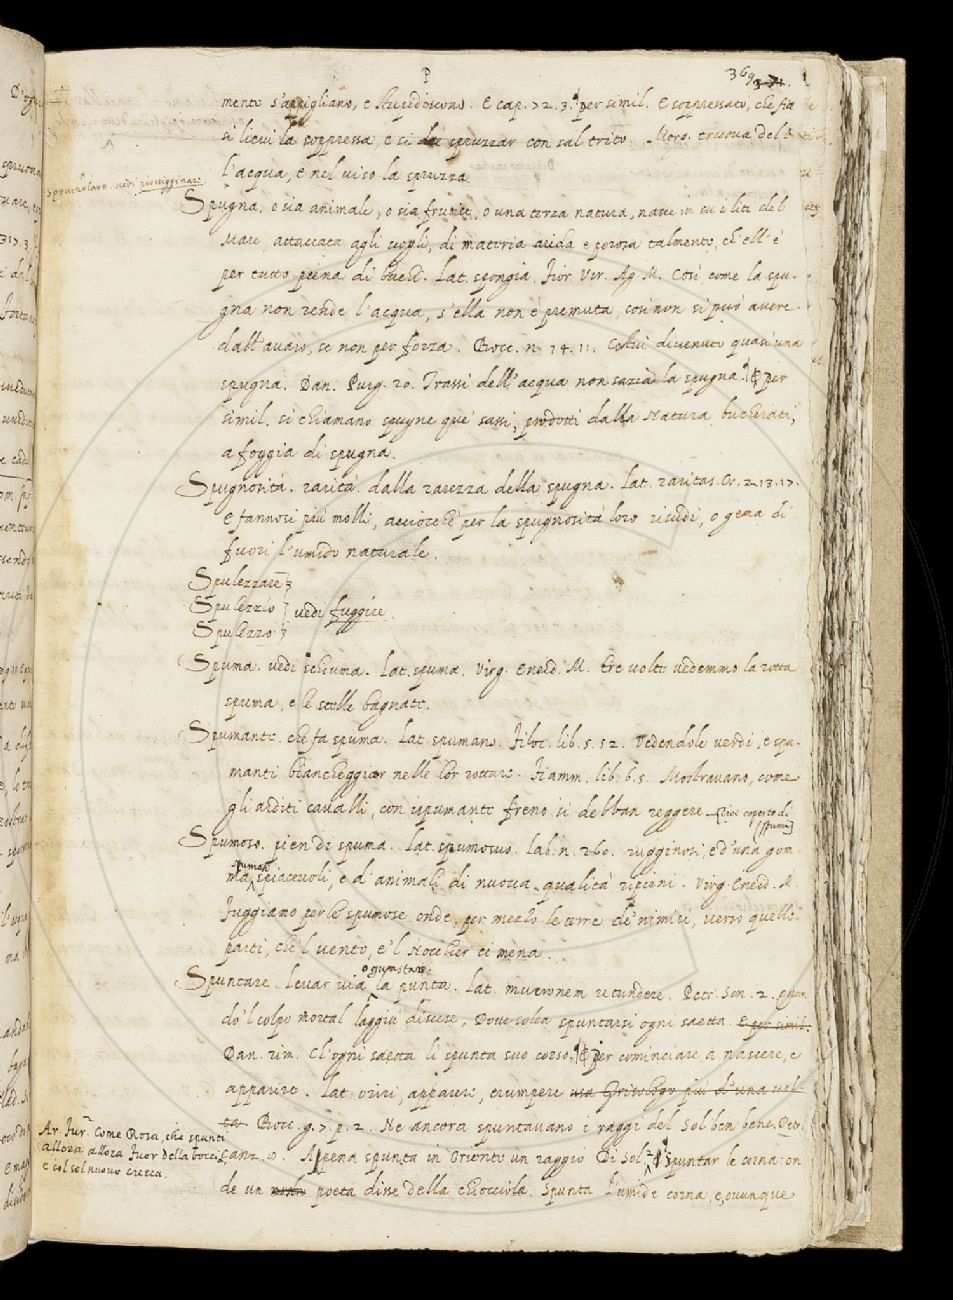 P
369
mente s'appigliano, e stupidiscono. E cap. 72. 3. per simil. E soppressato, che fia
si lievi la soppressa, e si spruzzar con sal trito Morg. truova del
l'acqua, e nel viso la spruzza
Spruzzolare. vedi piovigginare.
Spugna. o sia animale, o sia frutice, o una terza natura, nasce in su i liti del
Mare, attaccata agli scogli, di materia arida e porosa talmente, ch'ell'è
per tutto piena di buchi. Lat. spongia. Fior. Vir. Ag. M. Così, come la spu-
gna non rende l'acqua, s'ella non è premuta, così non si può avere
dall'avaro, se non per forza. Bocc. n. 74. 11. Costui divenuto quasi una
spugna. Dan. Purg. 20. Trassi dell'acqua non sazia la spugna. E per
simil. si chiamano spugne que' sassi, prodotti dalla Natura bucherati,
a foggia di spugna.
Spugnosità. rarità. dalla rarezza della spugna. Lat. raritas. Cr. 2. 13. 17.
E fannosi più molli, acciocchè per la spugnosità loro risudi, e gema di
fuori l'umido naturale.
Spulezzare
Spulezzio vedi fuggire.
Spulezzo
Spuma. vedi schiuma. Lat. spuma. Virg. Eneid. M. tre volte vedemmo la rotta
spuma, e le stelle bagnate.
Spumante. che fa spuma. Lat. spumans. Filoc. lib. 5. 52. Vedendole verdi, e spu-
manti biancheggiar nelle lor rotture. Fiamm. lib. 6. 5. Mostravano, come
gli arditi cavalli, con ispumante freno si debban reggere [cioè coperto di
spuma]
Spumoso. pien di spuma. Lat. spumosus. Lab. n. 260. rugginosi, e d'una gom-
ma spumosa spiacevoli, e d'animali di nuova qualità ripieni. Virg. Eneid. M.
Fuggiamo per le spumose onde, per mezzo le terre de' nimici, verso quelle
parti, che 'l vento, e 'l Nocchier ci mena.
Spuntare. levar via, o guastare la punta. Lat. mucronem retundere. Petr. Son. 2. Quan-
do 'l colpo mortal laggiù discese, Dove solea spuntarsi ogni saetta. E per simil.
Dan. rim. Ch'ogni saetta lì spunta suo corso. E per cominciare a nascere, e
apparire. Lat. oriri, apparere, erumpere usa Gritologo più d'una vol-
ta Bocc. g. 7. p. 2. Ne ancora spuntavano i raggi del Sol ben bene. Petr.
canz. 8. Appena spunta in Oriente un raggio Di Sol. E Spuntar le corna: on
de un poeta disse della chiocciola. Spunta l'umide corna, e, ovunque
Ar. Fur. Come Rosa, che spunti
allora allora fuor della boccia,
e col sol nuovo cresca.